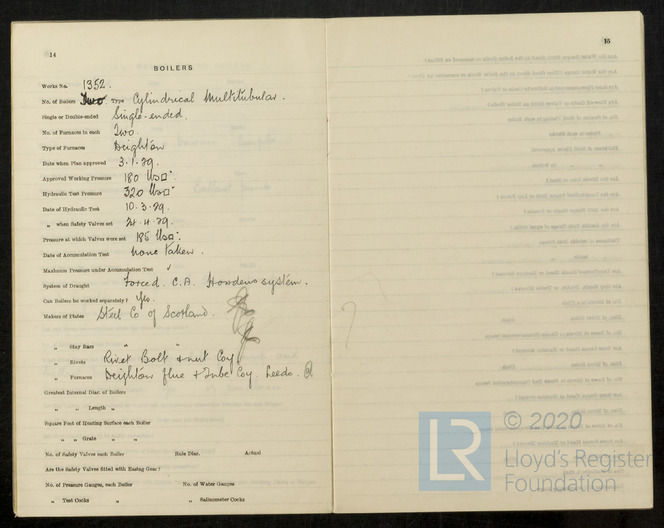 14
BOILERS
Works No. 1352.
No. of Boilers Two Type Cylindrical Multitubular.
Single or Double-ended Single-ended.
No. of Furnaces in each Two.
Type of Furnaces Deighton
Date when Plan approved 3.1.29.
Approved Working Pressure 180 lbs□"
Hydraulic Test Pressure 320 lbs□"
Date of Hydraulic Test 10.3.29.
„ when Safety Valves set 24.4.29.
Pressure at which Valves were set 185 lbs□".
Date of Accumulation Test None taken.
Maximum Pressure under Accumulation Test
System of Draught Forced. C.A. Howdens system.
Can Boilers be worked separately? Yes.
Makers of Plates Steel Co of Scotland.
„ Stay Bars „ „
„ Rivets Rivet Bolt & nut Coy.
„ Furnaces Deighton flue & Tube Coy. Leeds.
Greatest Internal Diar. of Boilers
„ „ Length „
Square Feet of Heating Surface each Boiler
„ „ Grate „ „
No. of Safety Valves each Boiler Rule Diar. Actual
Are the Safety Valves fitted with Easing Gear?
No. of Pressure Gauges, each Boiler No. of Water Gauges
„ Test Cocks „ „ Salinometer Cocks
15
LR © 2020
Lloyd's Register
Foundation